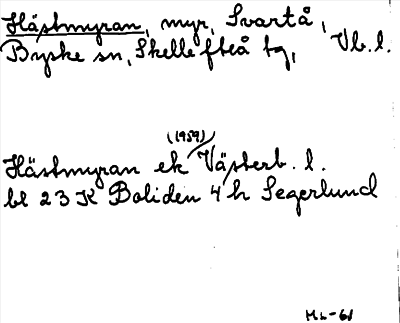 Hästmyran, myr, Svartå,
Byske sn, Skellefteå tg, Vb. l.
(1959)
Hästmyran ek Västerb. l.
bl 23 K Boliden 4 h Segerlund